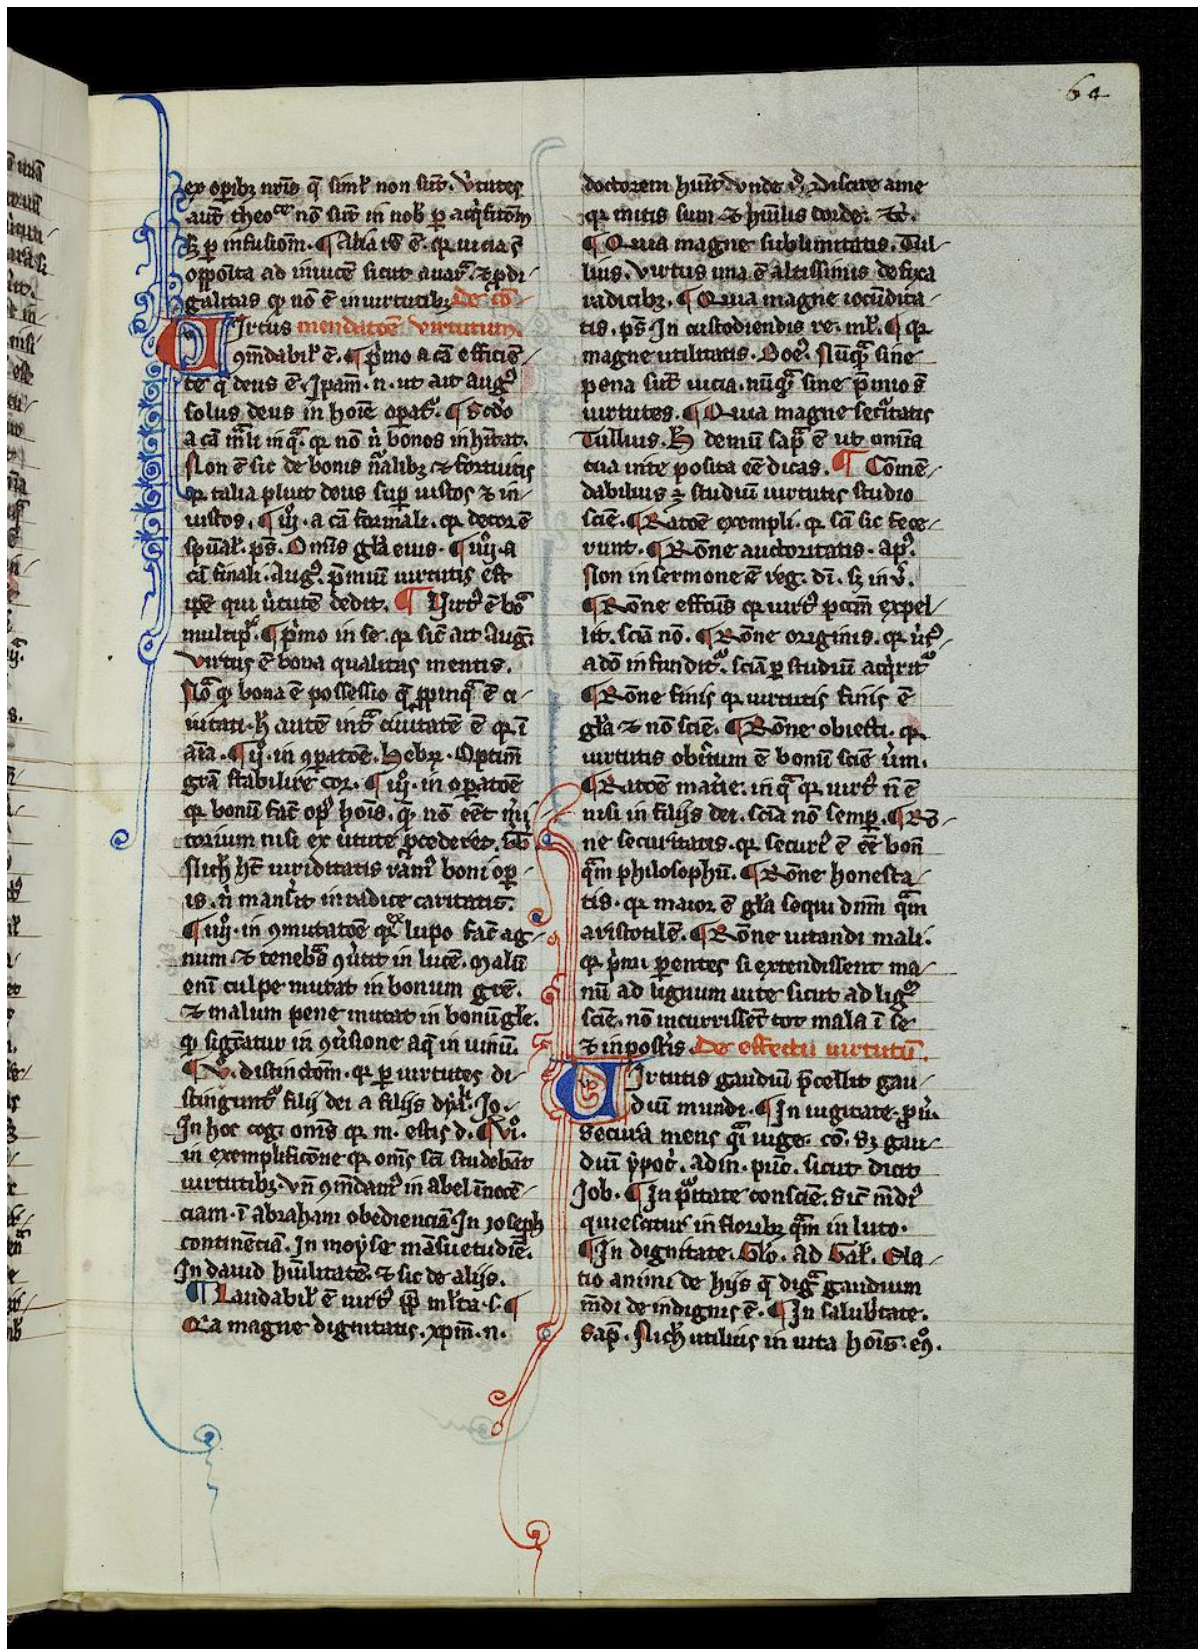 64
ex oꝑibꝫ nr̄is q̄ simł non sūt. v̓tutes
aut̄ theo^ce nō sūt in nob̄ ꝑ acq̓sitōm
sꝫ ꝑ infusiōm. ¶ Alia rō ē. qꝛ uicia s̄
oppōita ad inuicē sicut auar̄. ⁊ ꝓdi
galitas qͥ nō ē in uirtutibꝫ De cō
Irtus mendatōe virtutum.
ꝯm̄dabił ē. ¶ p̓mo a cā efficiē
te q̓ deus ē. Ipam̄. n. ut ait aug᷒
solus deus in hoīe oꝑat᷒. ¶ Scd̓o
a cā mālī in qͣ. qꝛ nō n̓ bonos inhītat.
Non ē sic de bonis nālibꝫ ⁊ fortuitis
qꝛ talia pluit deus suꝑ iustos ⁊ in
iustos. ¶ iij. a cā formali. qꝛ decor ē
spūał. ps̄. Om̄is gła eius. ¶ iiij. a
cā finali. Aug᷒. p̄miū uirtutis est
ip̄e qui u̓tutē dedit. ¶ Uirt᷒ ē bōa
multipł. ¶ p̓mo in se. qꝛ sic̄ ait Aug᷒
virtus ē bona qualitas mentis.
Nōa qꝫ bona ē possessio q̄ ꝓpinqͣ ē ci
uitati. h̄ autē intͣ ciuitatē ē qꝛ ī
aīa. ¶ ij᷒. in ꝯꝑatōe. hebꝝ. Optim̄
grā stabilire cor. ¶ iij᷒. in oꝑatōe
qꝛ bonū fac̄ op᷒ hoīs. qͥ nō eēt m̓i
torium nisi ex u̓tute p̄cederet.
Nich̄ hēt uiriditatis ram᷒ boni oꝑ
is. n̓ manserit in radice caritatis.
¶ iiij. in ꝯmutatōe qꝛ lupo fac̄ ag
num ⁊ tenebͣs ꝯu̓tit in lucē. malū
enī culpe mutat in bonum gr̄e.
⁊ malum pene mutat in bonū głe.
qͥ siḡtatur in ꝯu̓sione aq̄ in uinū.
¶ v᷒. distinctōm. qꝛ ꝑ uirtutes di
stingunt᷒ filij dei a filijs dyał. Jo.
In hoc cog. om̄s qꝛ m. estis d. ¶ vi᷒.
in exemplificōne qꝛ om̄s sc̄i studebāt
uirtutibꝫ. vn̄ ꝯm̄dat᷒ in abel īnocē
ciam. ī abraham obedienciā. In ioseph
continēciā. In moyse māsuetudiē.
In dauid hūilitatē. ⁊ sic de alijs.
¶ Laudabił ē uirt᷒ ꝓpt̄ młta. s. ¶
Qia magne dignitatis. xpm̄. n.
doctorem hūit. vnde d᷒. Discite a me
qꝛ mitis sum ⁊ hūilis corde. ⁊c̄.
¶ Quia magne sublimitatis. Tul
lius. virtus una ē altissimis defixa
radicibꝫ. ¶ Quia magne iocūdita
tis. ps̄. In custodiendis re. mł. ¶ qꝛ
magne utilitatis. Boe᷒. Nūqͣ sine
pena sūt uicia. nūqͣ sine p̄mio s̄
uirtutes. ¶ Quia magne secuͥtatis
Tullius. H̄ demū sap̄ ē ut omīa
tua inte posita eē dicas. ¶ Cōmē
dabilius ē studiū uirtutis studio
sciē. ¶ Ratōe exempli. qꝛ sc̄i sic fece
runt. ¶ Rōne auctoritatis. ap᷒.
Non in sermone ē reg. dī. sꝫ in v̓.
¶ Rōne effcūs qꝛ uirt᷒ pccm̄ expel
lit. sciā nō. ¶ Rōne originis. qꝛ u̓t᷒
a dō infundit᷒. sciā ꝑ studiū acq̓rit᷒
¶ Rōne finis qꝛ uirtutis finis ē
gła ⁊ nō sciē. ¶ Rōne obiecti. qꝛ
uirtutis obītum ē bonū sciē u̓m.
¶ Ratōe mat̓ie. in qͣ qꝛ uirt᷒ n̄ ē
nisi in filijs dei. sciā nō semꝑ. ¶ Rō
ne securitatis. qꝛ secur᷒ ē eē bon̄
qͣm philosophū. ¶ Rōne honesta
tis. qꝛ maior ē gła sequi dnm̄ qͣm
aristotilē. ¶ Rōne uitandi mali.
qꝛ p̓mi ꝑentes si extendissent ma
nū ad lignum uite sicut ad lig᷒
sciē. nō incurrissēt tot mala ī se
⁊ in post̄is. De effectu uirtutū.
Irtutis gaudiū p̄cellit gau
diū mundi. ¶ In iugitate. ꝓu̓.
Secura mens qͣi iuge. cō. Sꝫ gau
diū ypoc̓. ad in. pūc̄. sicut dicit
Job. ¶ In pͥtate consciē. Sic̄ m̄di᷒
quiescitur in floribꝫ qͣm in luto.
¶ In dignitate. Glō. ad Gał. Ela
tio animi de hijs q̄ digͣ gaudium
m̄di de indignis ē. ¶ In salub̓tate.
Sap̄. Nich̄ utilius in uita hoīs. eo᷒.